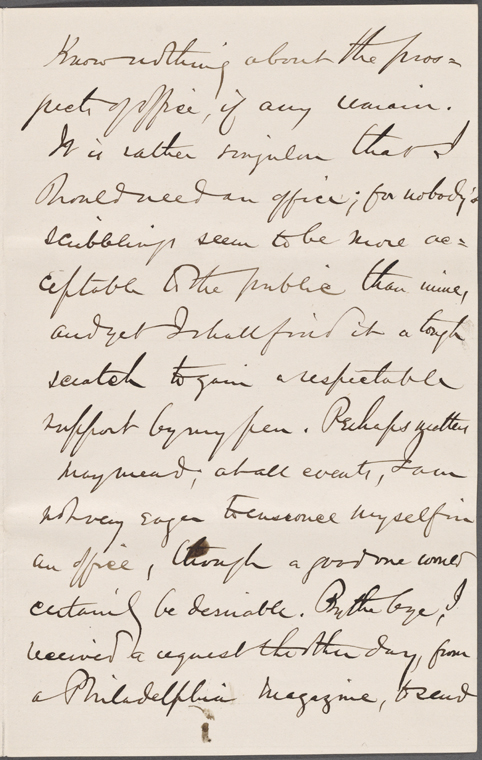 Know nothing about the pros=
pects of office, if any remain.
It is rather singular that I
should need an office; for nobody's
scribblings seem to be more ac=
ceptable to the public than mine,
and yet I shall find it a tough
scratch to gain a respectable
support by my pen. Perhaps matters
may mend; at all events, I am
not very eager to ensconce myself in
an office, though a good one would
certainly be desirable. By the bye, I
received a request the other day, from
a Philadelphia Magazine, to send